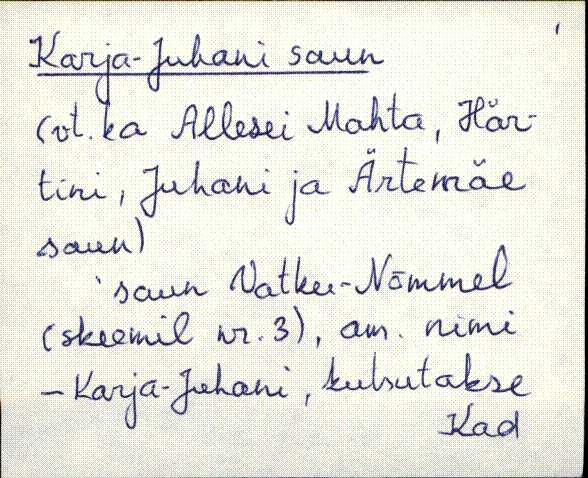 Karja-Juhani saun
(vt. ka Allesei Mahta, Här-
tini, Juhani ja Ärtemäe
saun)
'saun Vatku-Nõmmel
(skeemil nr. 3), am. nimi
– Karja-Juhani, kutsutakse
Kad